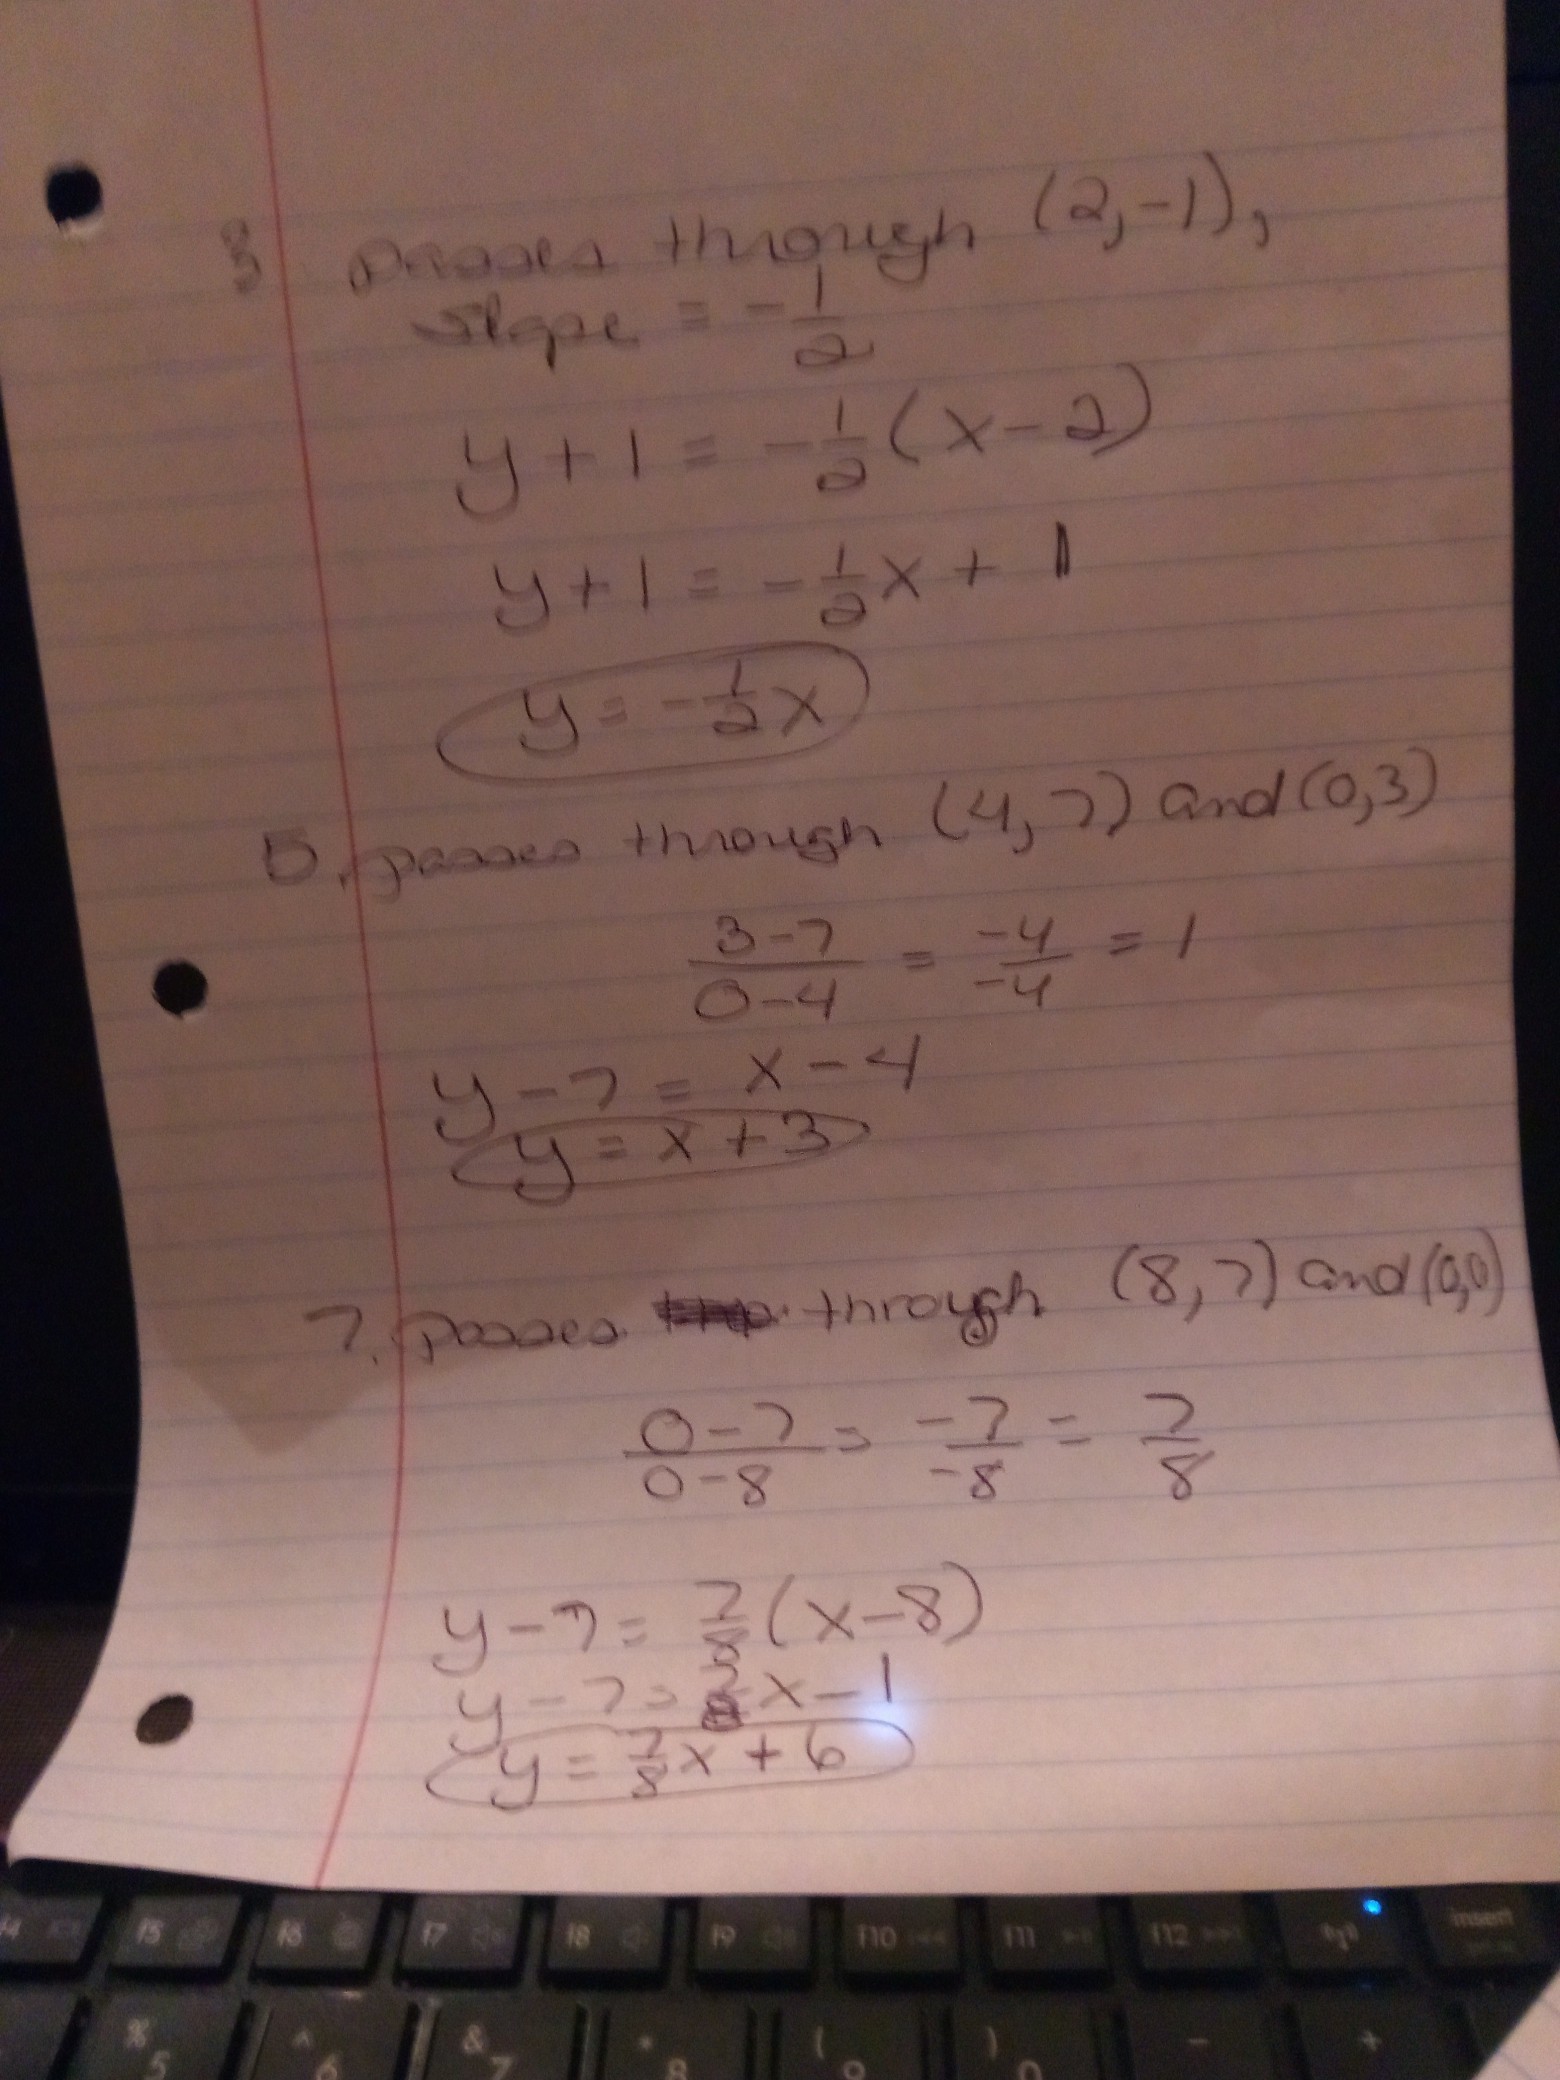 3 passes through (2,-1),
slope = -1/2
y + 1 = -1/2 (x - 2)
y + 1 = -1/2 x + 1
y = -1/2 x
5. passes through (4, 7) and (0,3)
3-7/0-4 = -4/-4 = 1
y - 7 = x - 4
y = x + 3
7. passes through (8, 7) and (0,0)
0-7/0-8 = -7/-8 = 7/8
y - 7 = 7/8 (x - 8)
y - 7 = x - 1
y = 7/8 x + 6
f5 f6 f7 f8 f9 f10 f11 f12 insert
% 5 ^ 6 & 7 * 8 ( 9 ) 0 - +